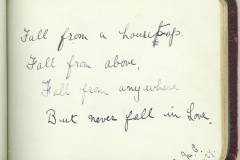 Fall from a housetop.
Fall from above,
Fall from anywhere
But never fall in Love.